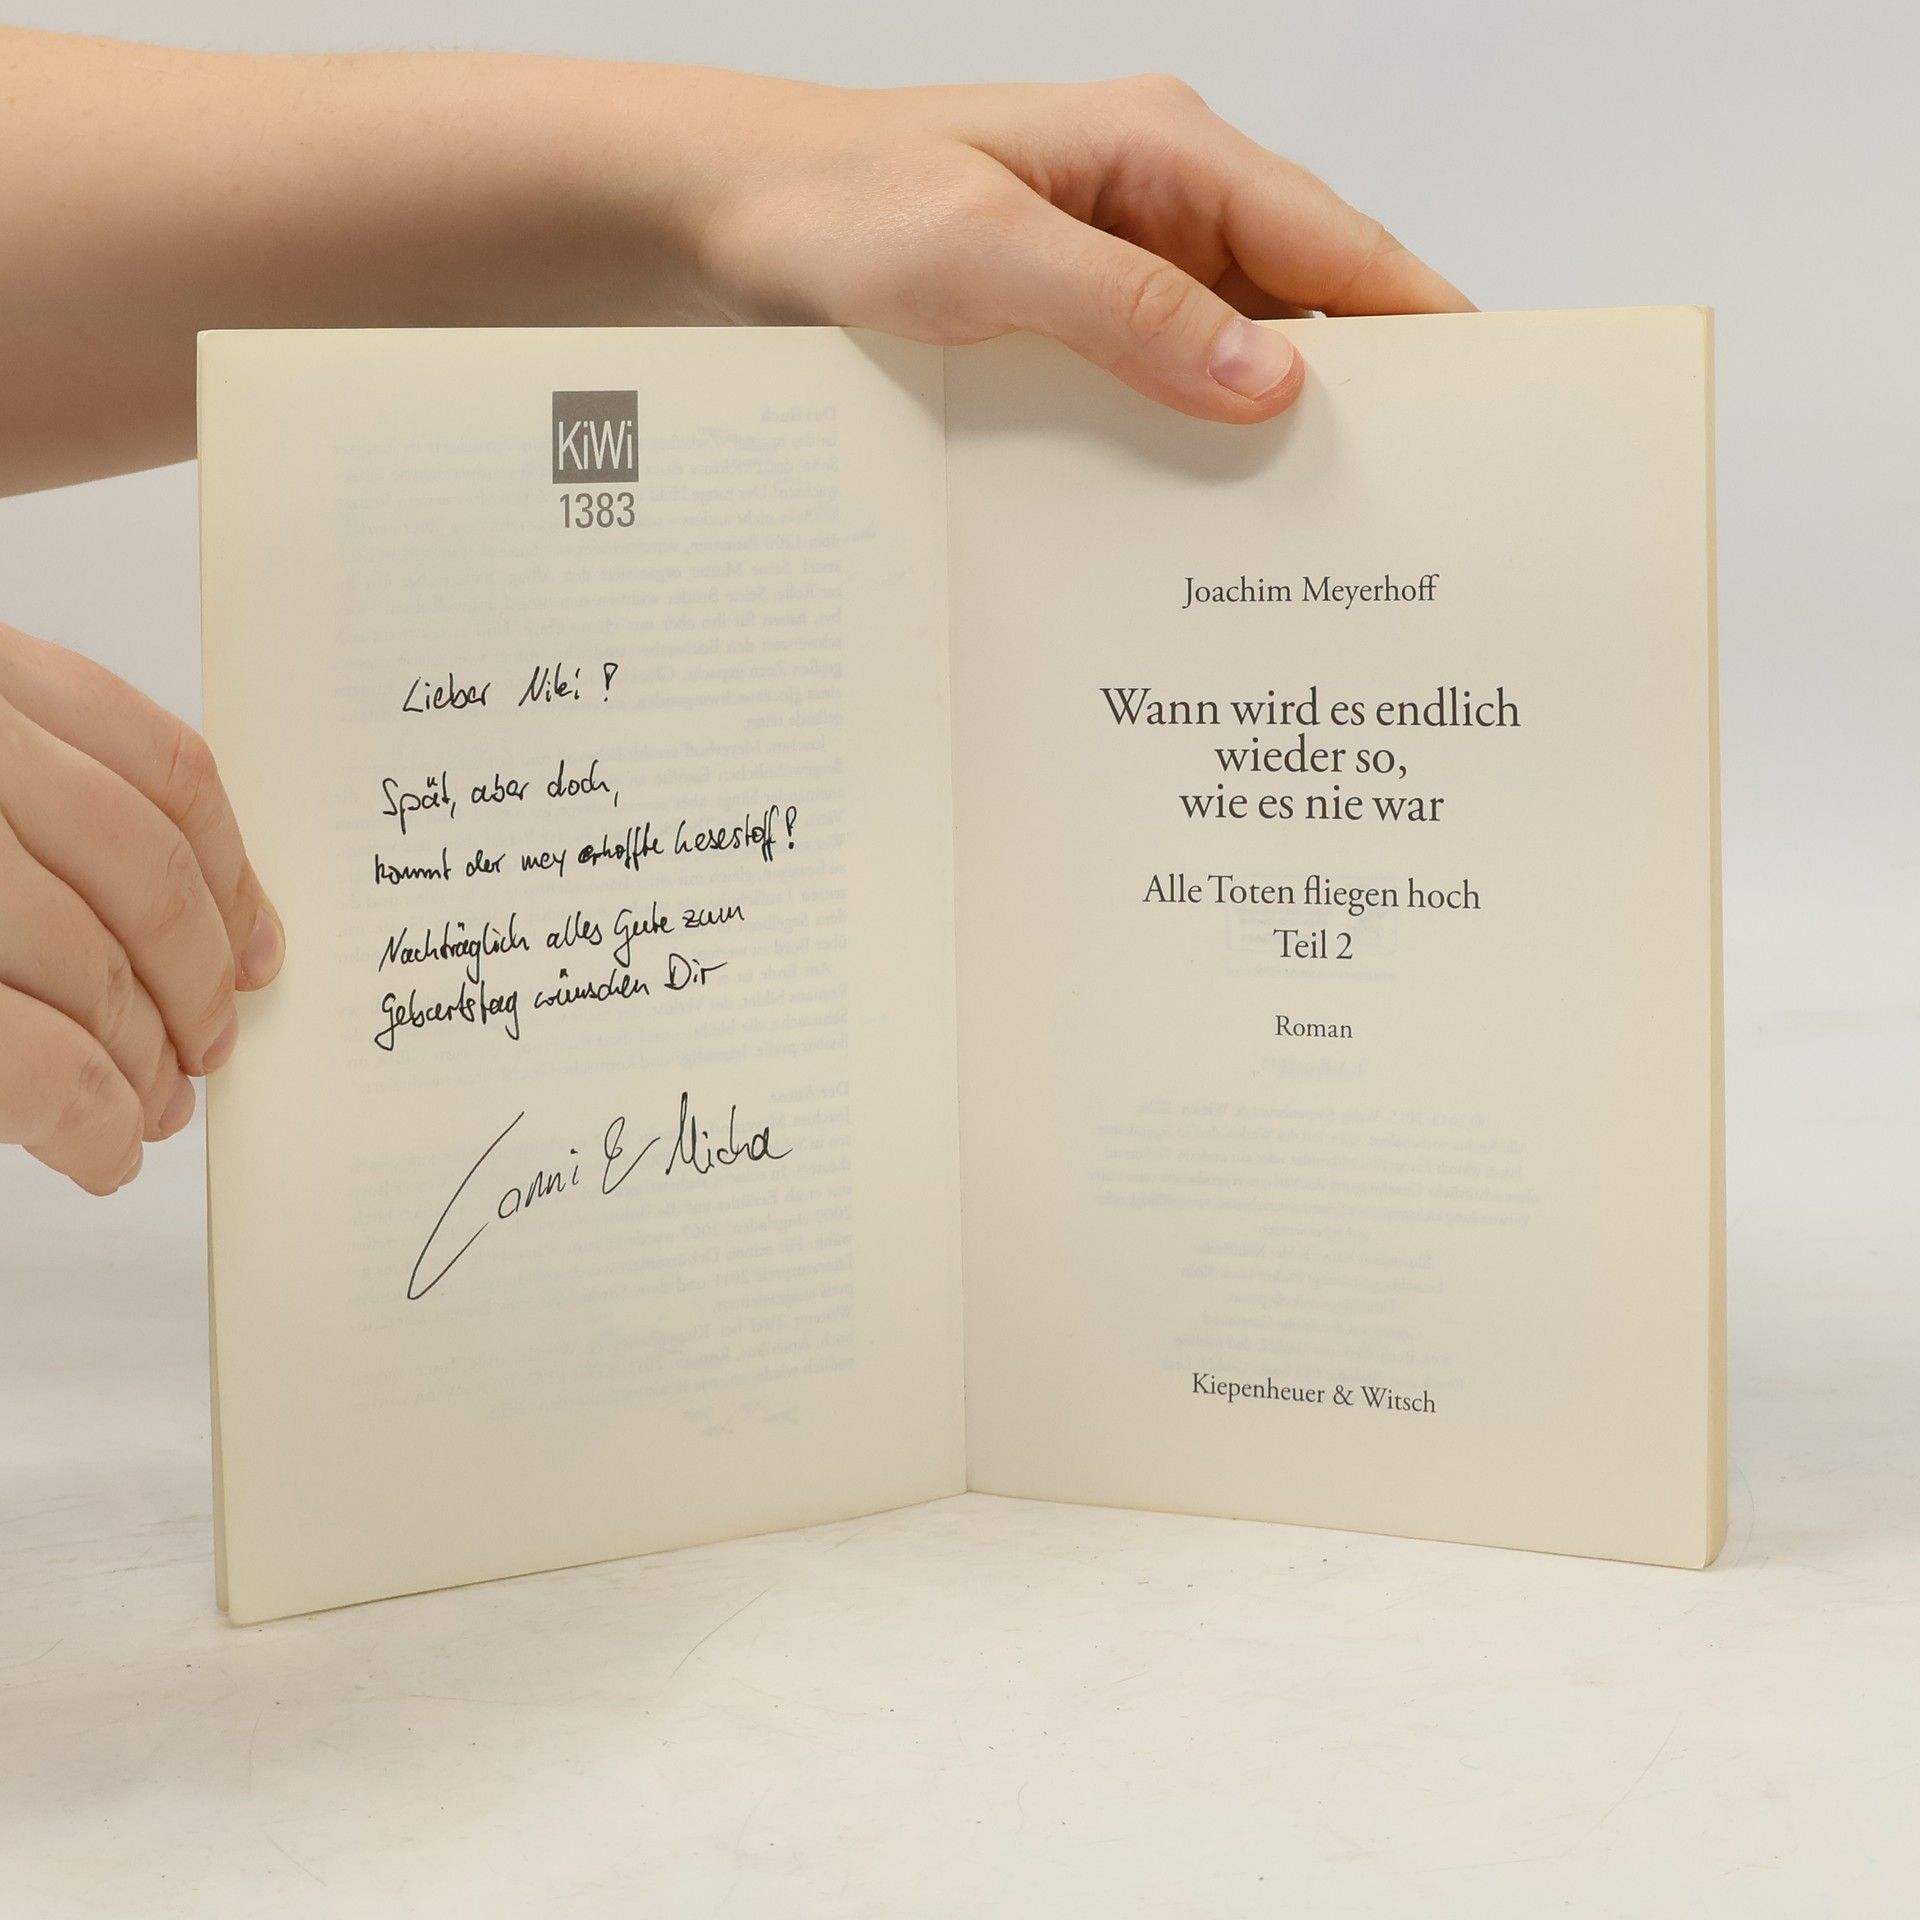 KiWi
1383
Lieber Niki!
Spät, aber doch,
kommt der mey erhoffte Lesestoff!
Nachträglich alles Gute zum
Geburtstag wünschen Dir
Conni & Micha
Joachim Meyerhoff
Wann wird es endlich
wieder so,
wie es nie war
Alle Toten fliegen hoch
Teil 2
Roman
Kiepenheuer & Witsch